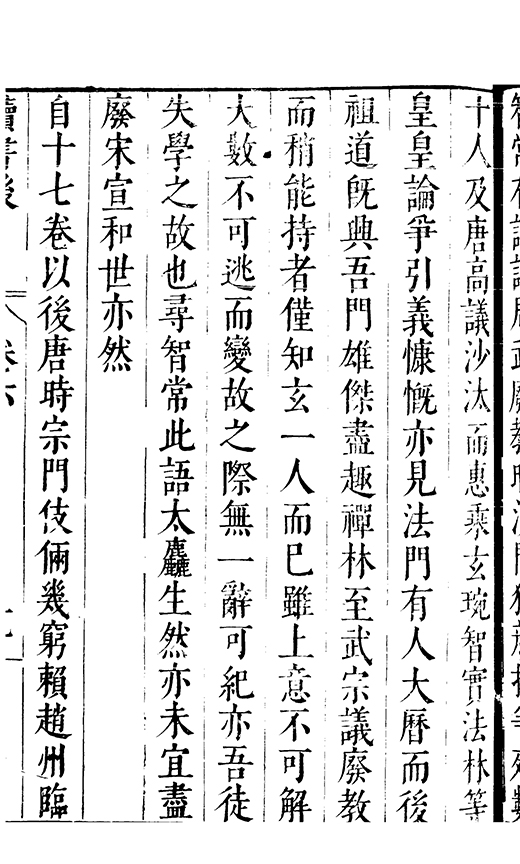 周武廢教時
十人及唐高議沙汰而惠乘玄琬智實法林等
皇皇論爭引義慷慨亦見法門有人大曆而後
祖道旣興吾門雄傑盡趣禪林至武宗議廢教
而稍能持者僅知玄一人而巳雖上意不可解
大數不可逃而變故之際無一辭可紀亦吾徒
失學之故也尋智常此語太麤生然亦未宜盡
廢宋宣和世亦然
自十七卷以後唐時宗門伎倆幾窮賴趙州臨
讀書後 卷六